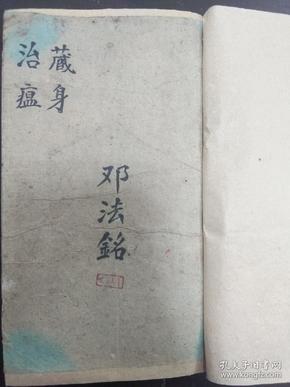 藏身
治瘟
邓法銘
孔夫子旧书网